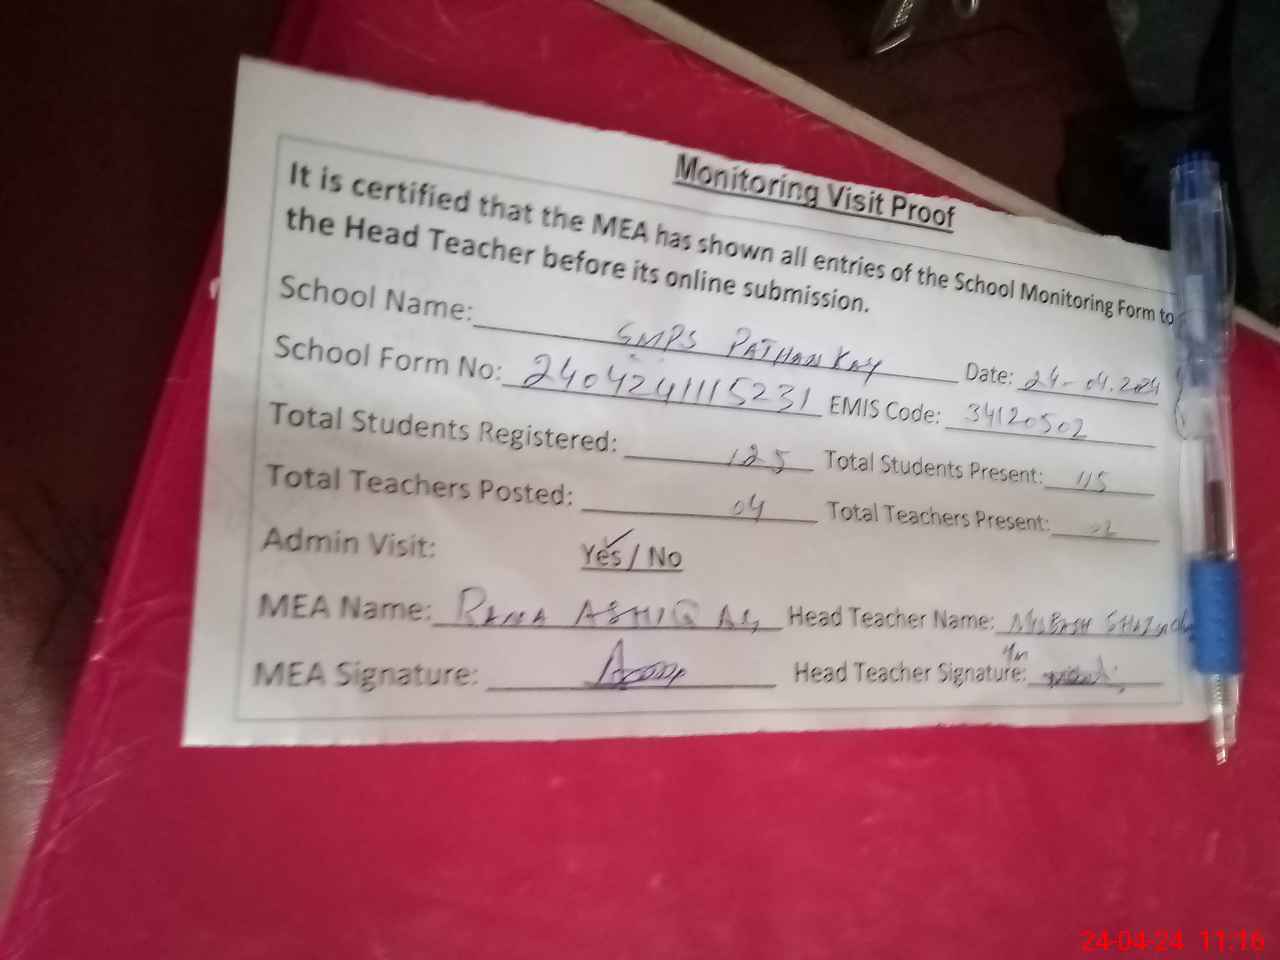 Monitoring Visit Proof
It is certified that the MEA has shown all entries of the School Monitoring Form to
the Head Teacher before its online submission.
School Name: GMPS PATHAN KAY Date: 24-04.2024
School Form No: 2404241115231 EMIS Code: 34120502
Total Students Registered: 125 Total Students Present: 115
Total Teachers Posted: 04 Total Teachers Present:
Admin Visit: Yes / No
MEA Name: RANA ASHIQ Head Teacher Name:
MEA Signature: Head Teacher Signature:
24-04-24 11:16